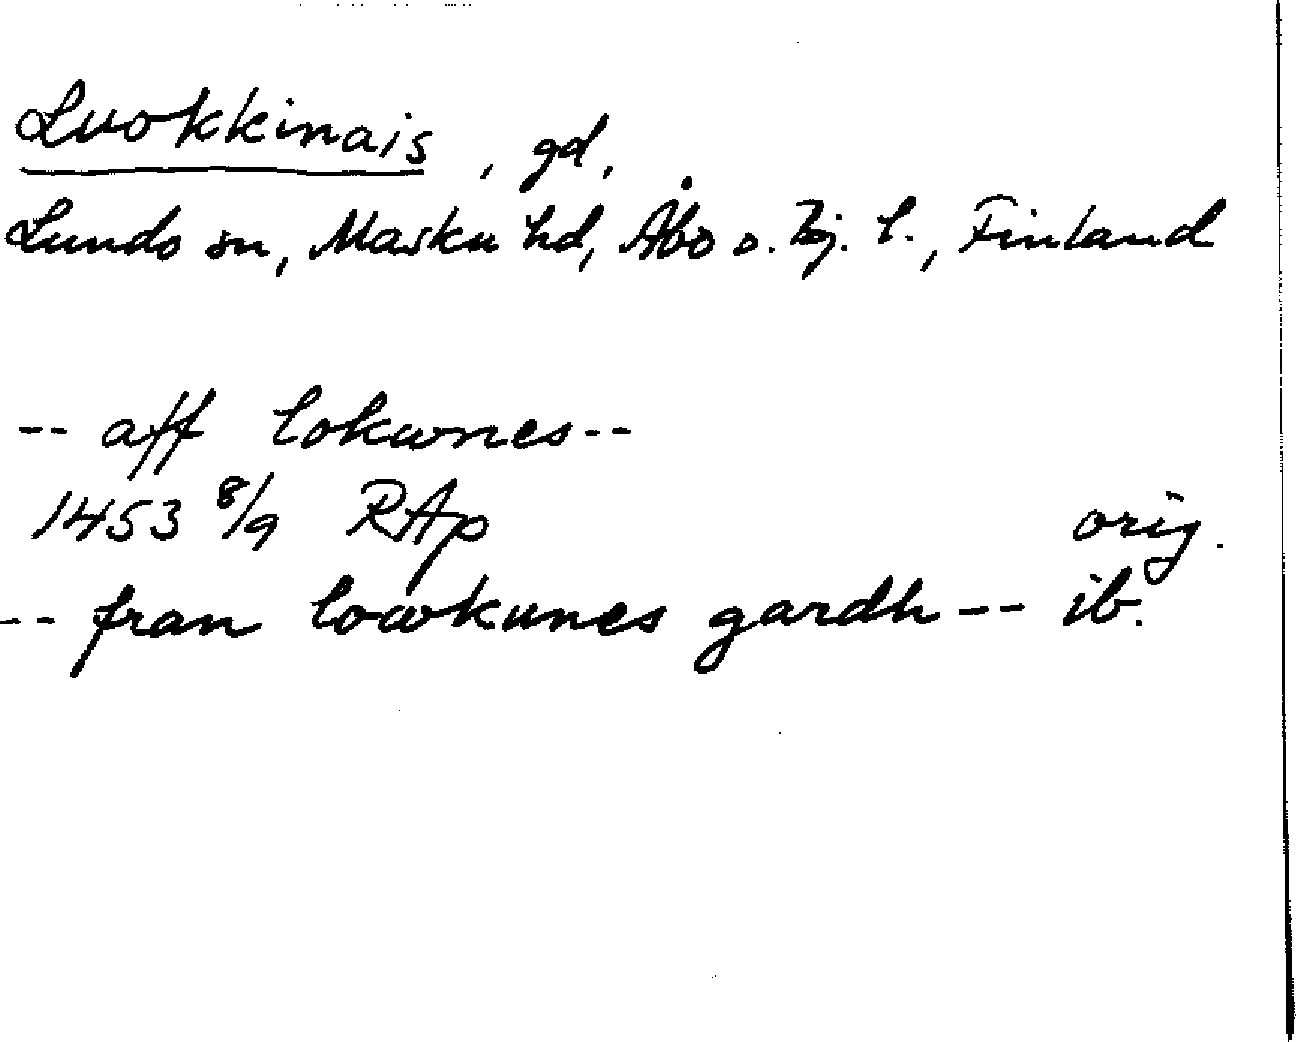 Luokkinais, gd,
Lundo sn, Masku hd, Åbo o. Bj. l., Finland
-- aff lokunes--
1453 8/9 RAp orig.
-- fran lowkunes gardh -- ib.